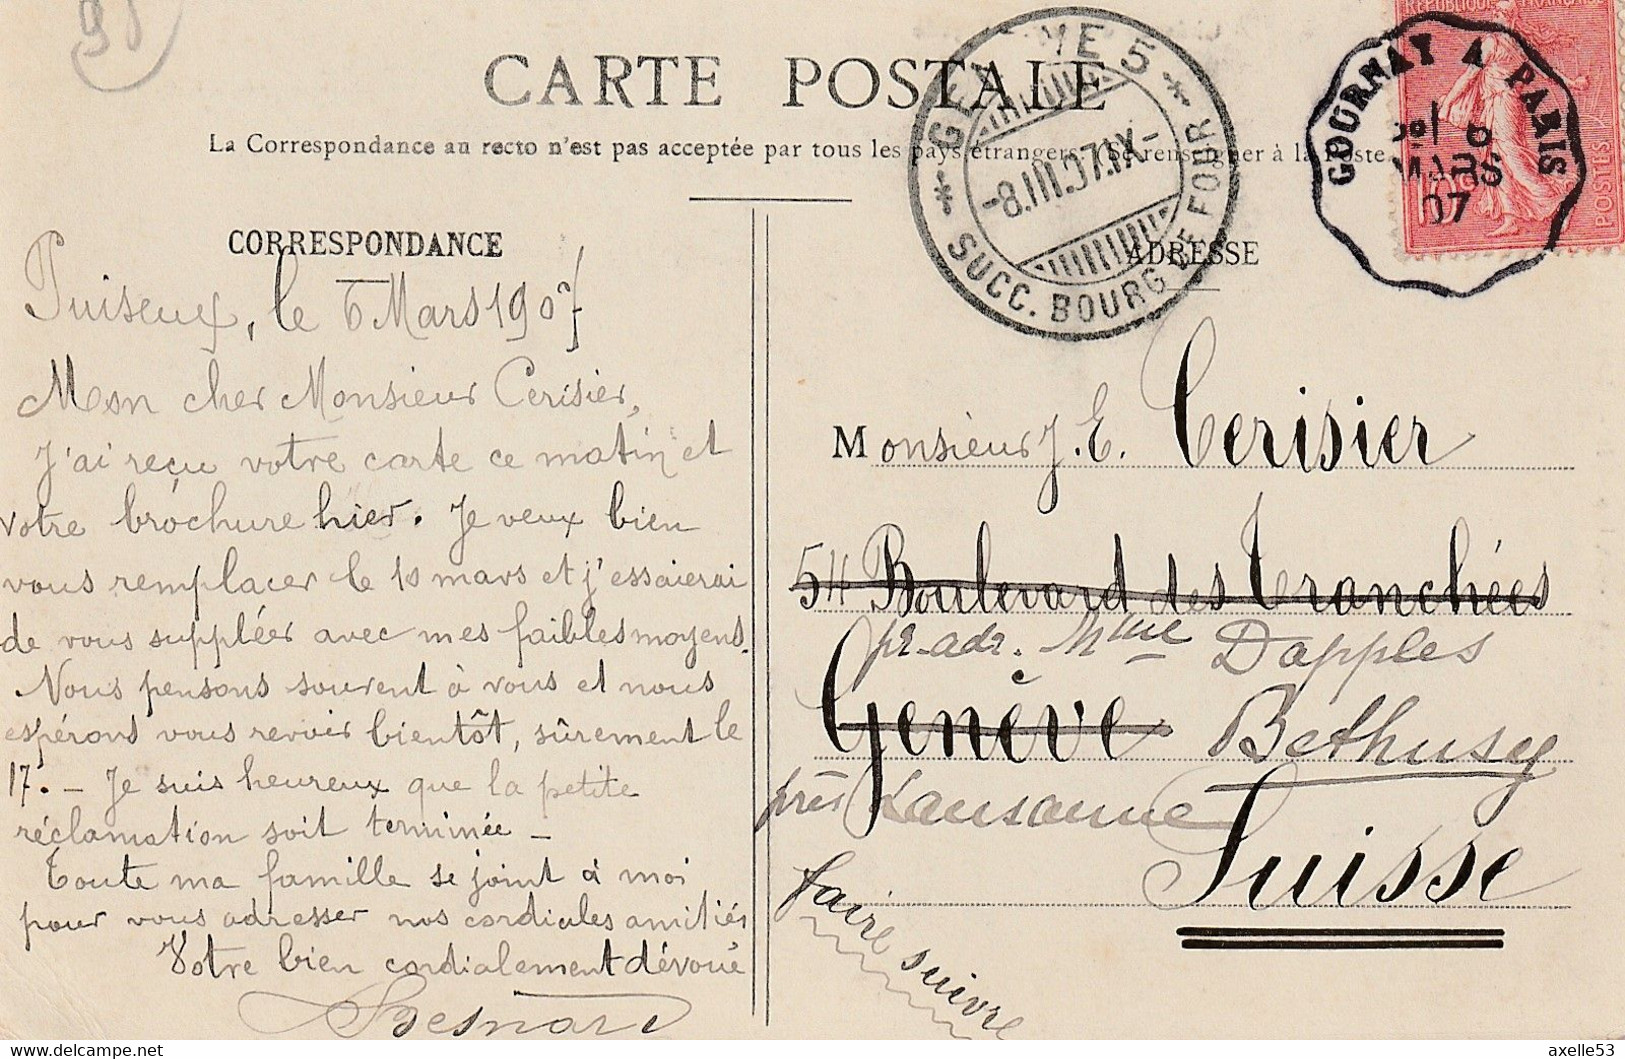 95
CARTE POSTALE
La Correspondance au recto n'est pas acceptée par tous les pays étrangers. Se renseigner à la Poste.
CORRESPONDANCE
ADRESSE
GENÈVE 5
-8.III.07.IX-
SUCC. BOURG DE FOUR
RÉPUBLIQUE FRANÇAISE
POSTES
10c
GOURNAY A PARIS
6
MARS
07
Puiseux, le 6 Mars 1907
Mon cher Monsieur Cerisier,
J'ai reçu votre carte ce matin et
votre brochure hier. Je veux bien
vous remplacer le 10 mars et j'essaierai
de vous suppléer avec mes faibles moyens.
Nous pensons souvent à vous et nous
espérons vous revoir bientôt, sûrement le
17. - Je suis heureux que la petite
réclamation soit terminée -
Toute ma famille se joint à moi
pour vous adresser nos cordiales amitiés
Votre bien cordialement dévoué
Besnard
Monsieur J. E. Cerisier
54 Boulevard des Tranchées
pr. adr. Mme Dapples
Genève Béthusy
près Lausanne
Suisse
faire suivre
delcampe.net
axelle53